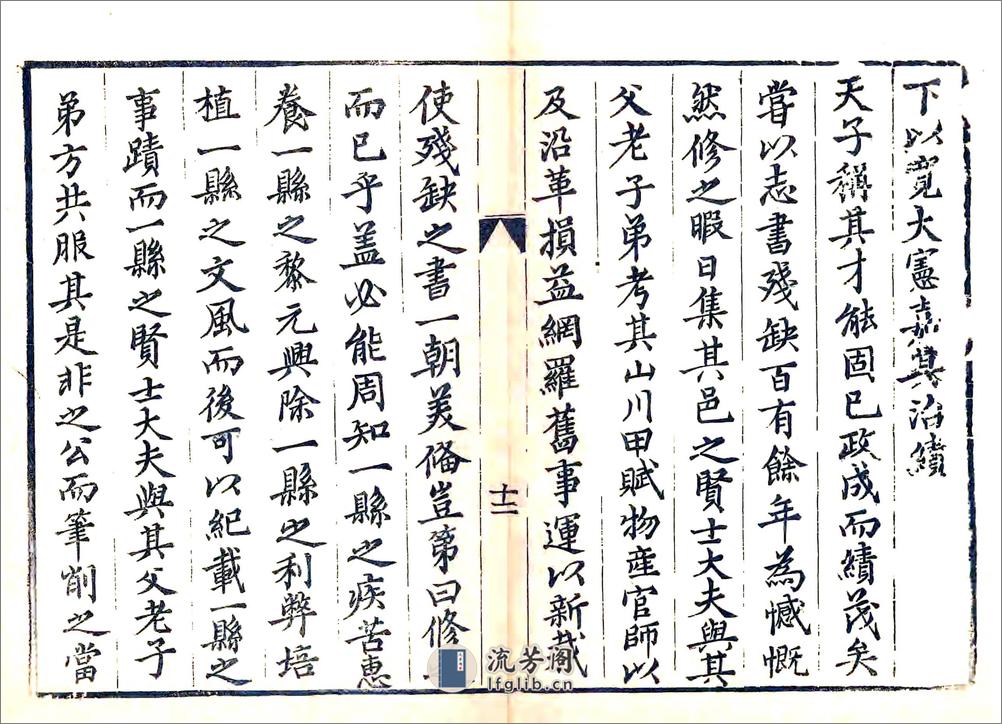 下以寛大憲嘉其治績
天子稱其才能固已政成而績茂矣
嘗以志書殘缺百有餘年為憾慨
然修之暇日集其邑之賢士大夫與其
父老子弟考其山川甲賦物産官師以
及沿革損益網羅舊事運以新裁
十二
使殘缺之書一朝美俻豈第曰修
而已乎盖必能周知一縣之疾苦惠
養一縣之黎元興除一縣之利弊培
植一縣之文風而後可以紀載一縣之
事蹟而一縣之賢士大夫與其父老子
弟方共服其是非之公而筆削之當
流芳阁
lfglib.cn